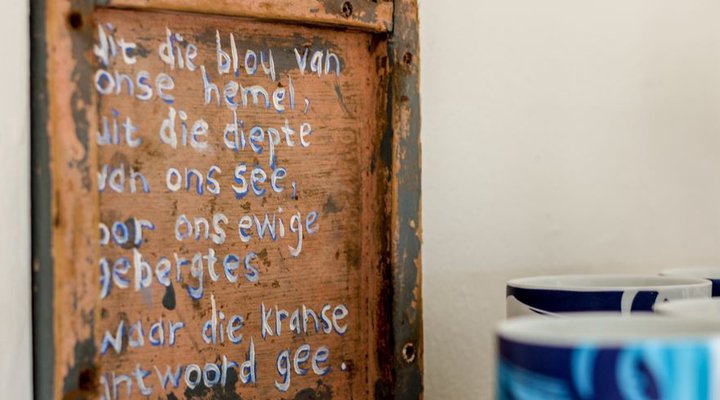 Uit die blou van
onse hemel,
uit die diepte
van ons see,
oor ons ewige
gebergtes
waar die kranse
antwoord gee.